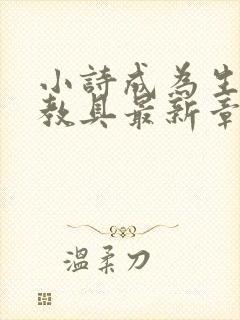 小詩成為生
教具最新章
溫柔刀